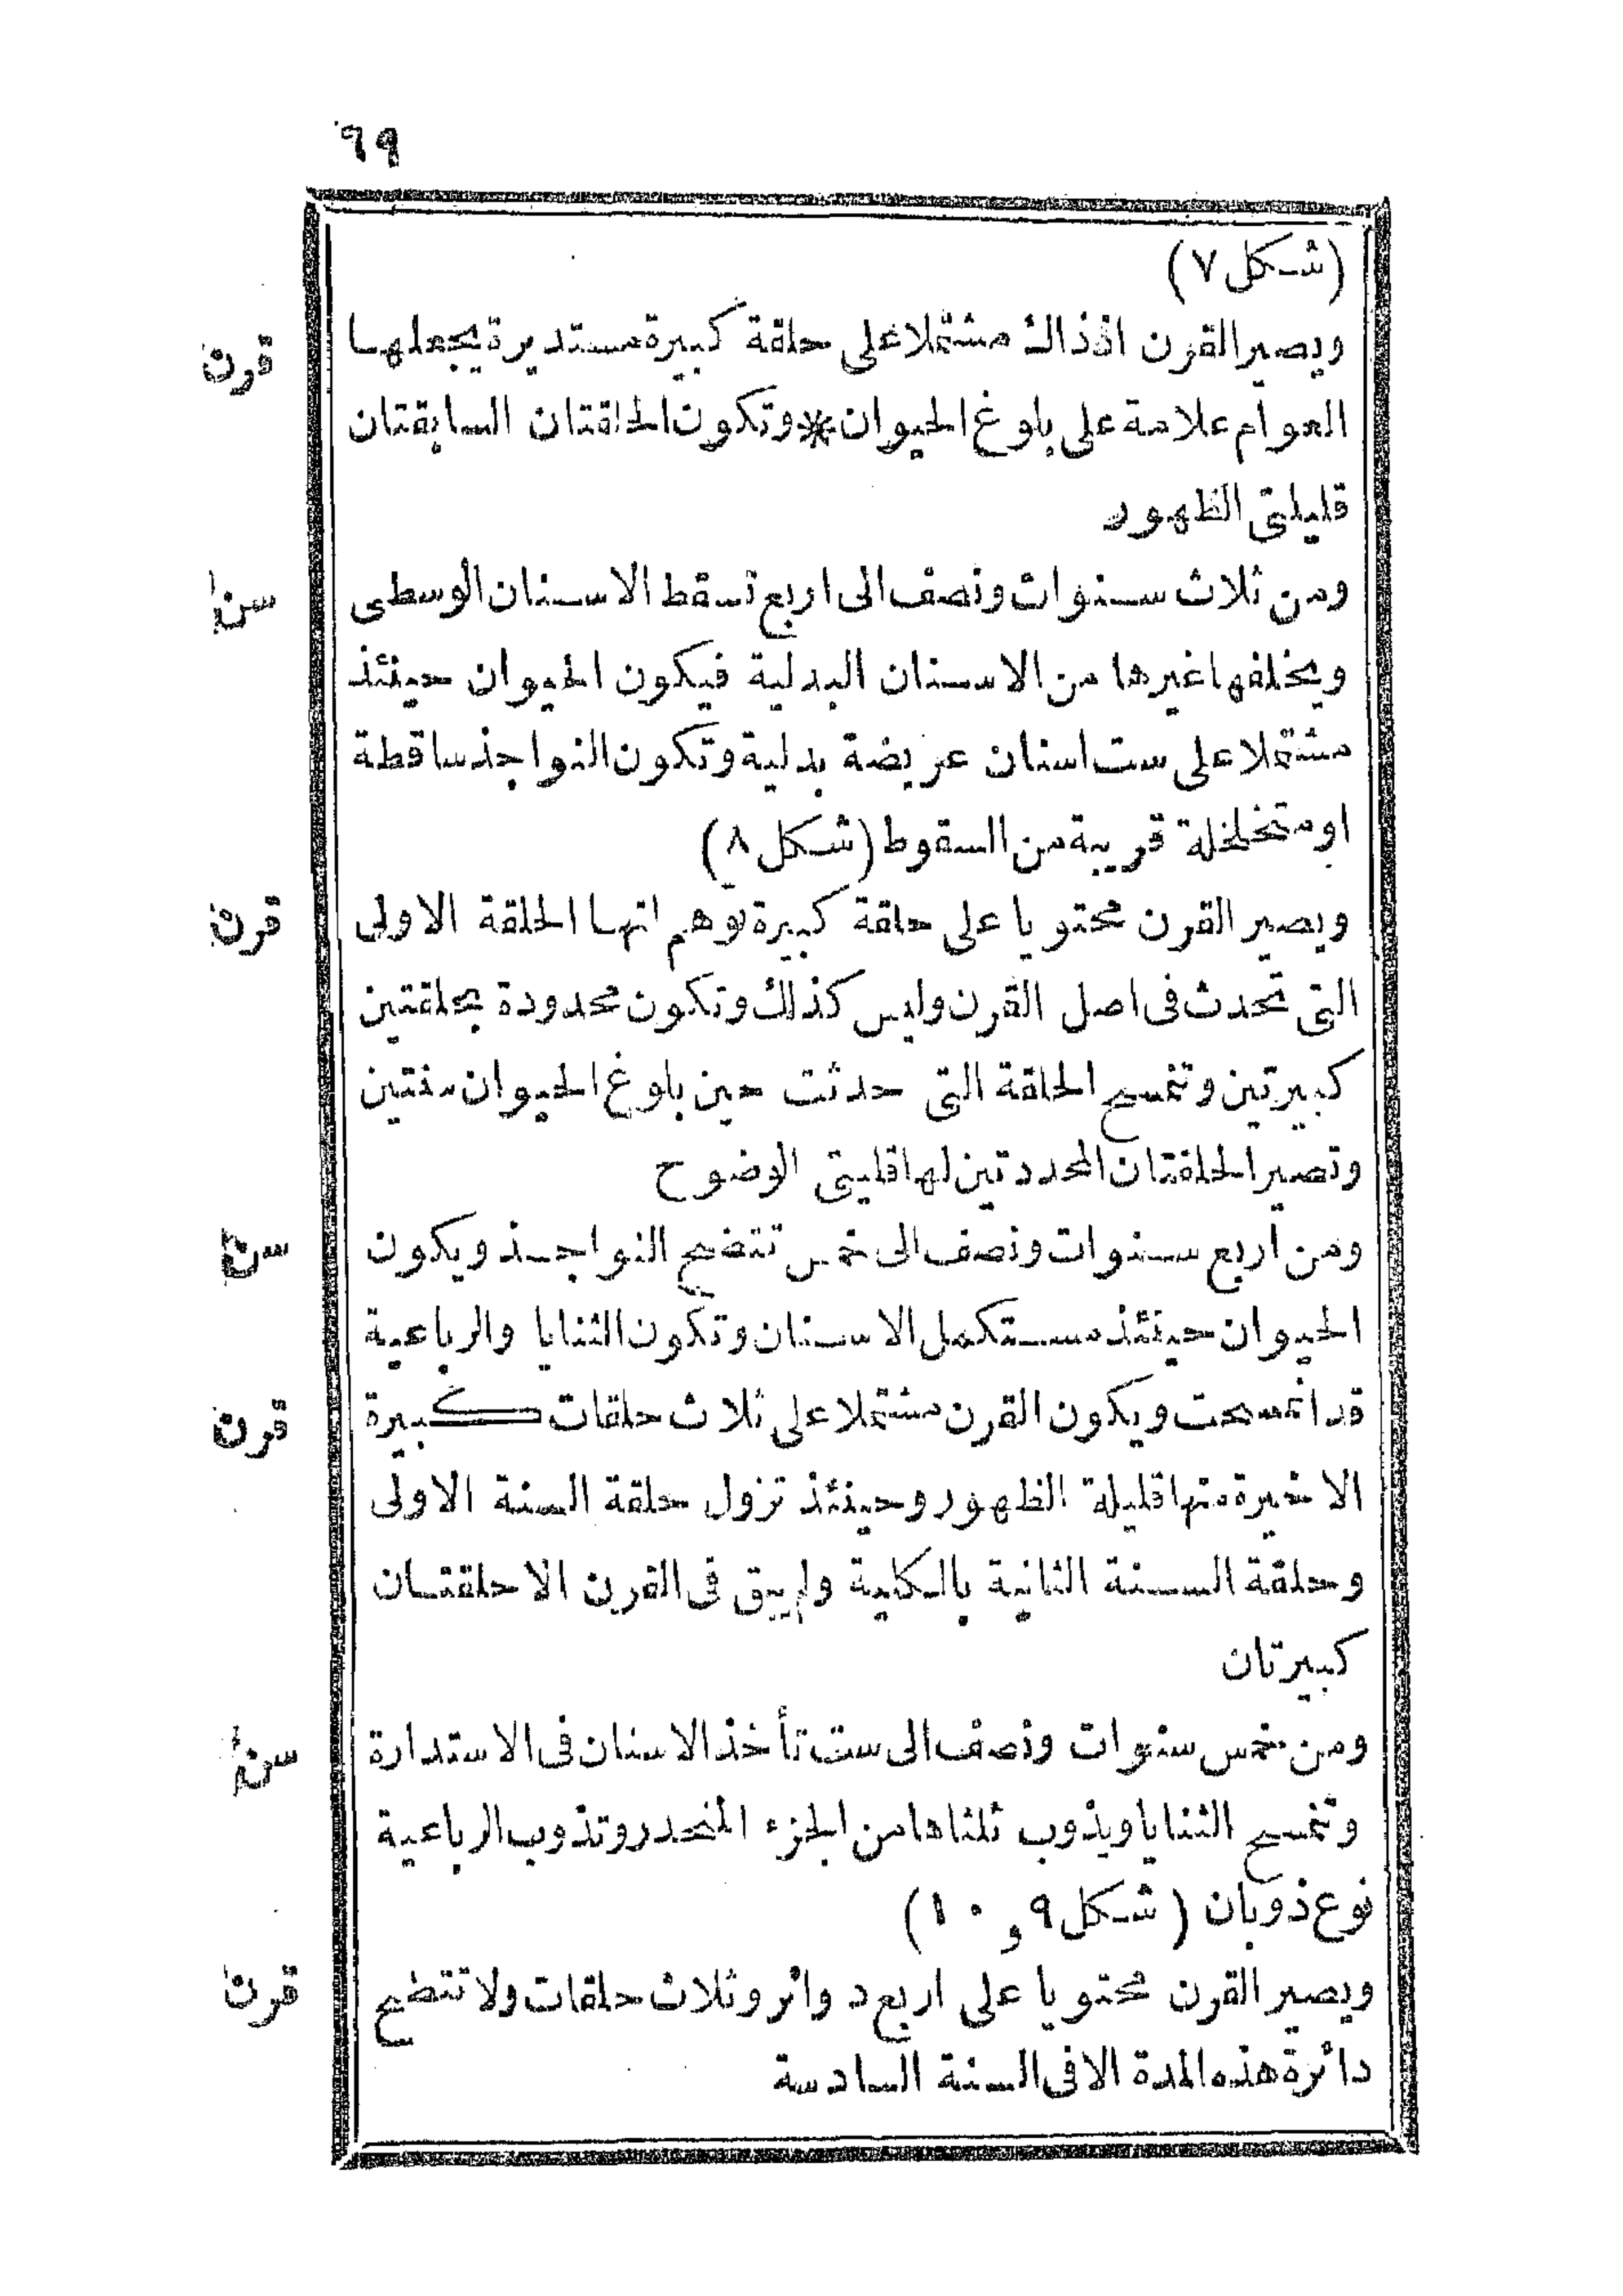 ٦٩
(شكل ٧)
ويصير القرن اذذاك مشتملا على حلقة كبيرة مستديرة يجعلها
قرن
العوام علامة على بلوغ الحيوان * وتكون الحلقتان السابقتان
قليلتى الظهور
ومن ثلاث سنوات ونصف الى اربع تسقط الاسنان الوسطى
سن
ويخلفها غيرها من الاسنان البدلية فيكون الحيوان حينئذ
مشتملا على ست اسنان عريضة بدلية وتكون النواجذ ساقطة
او متخلخلة قريبة من السقوط (شكل ٨)
ويصير القرن محتويا على حلقة كبيرة توهم انها الحلقة الاولى
قرن
التى تحدث فى اصل القرن وليس كذلك وتكون محدودة بحلقتين
كبيرتين وتنمسح الحلقة التى حدثت حين بلوغ الحيوان سنتين
وتصير الحلقتان المحددتين لها قليلتى الوضوح
ومن اربع سنوات ونصف الى خمس تتضح النواجذ ويكون
سن
الحيوان حينئذ مستكمل الاسنان وتكون الثنايا والرباعية
قد انمسحت ويكون القرن مشتملا على ثلاث حلقات كبيرة
قرن
الاخيرة منها قليلة الظهور وحينئذ تزول حلقة السنة الاولى
وحلقة السنة الثانية بالكلية ولم يبق فى القرن الا حلقتان
كبيرتان
ومن خمس سنوات ونصف الى ست تأخذ الاسنان فى الاستدارة
سن
وتنمسح الثنايا ويذوب ثلثاها من الجزء المنحدر وتذوب الرباعية
نوع ذوبان (شكل ٩ و ١٠)
ويصير القرن محتويا على اربع دوائر وثلاث حلقات ولا تتضح
قرن
دائرة هذه المدة الا فى السنة السادسة